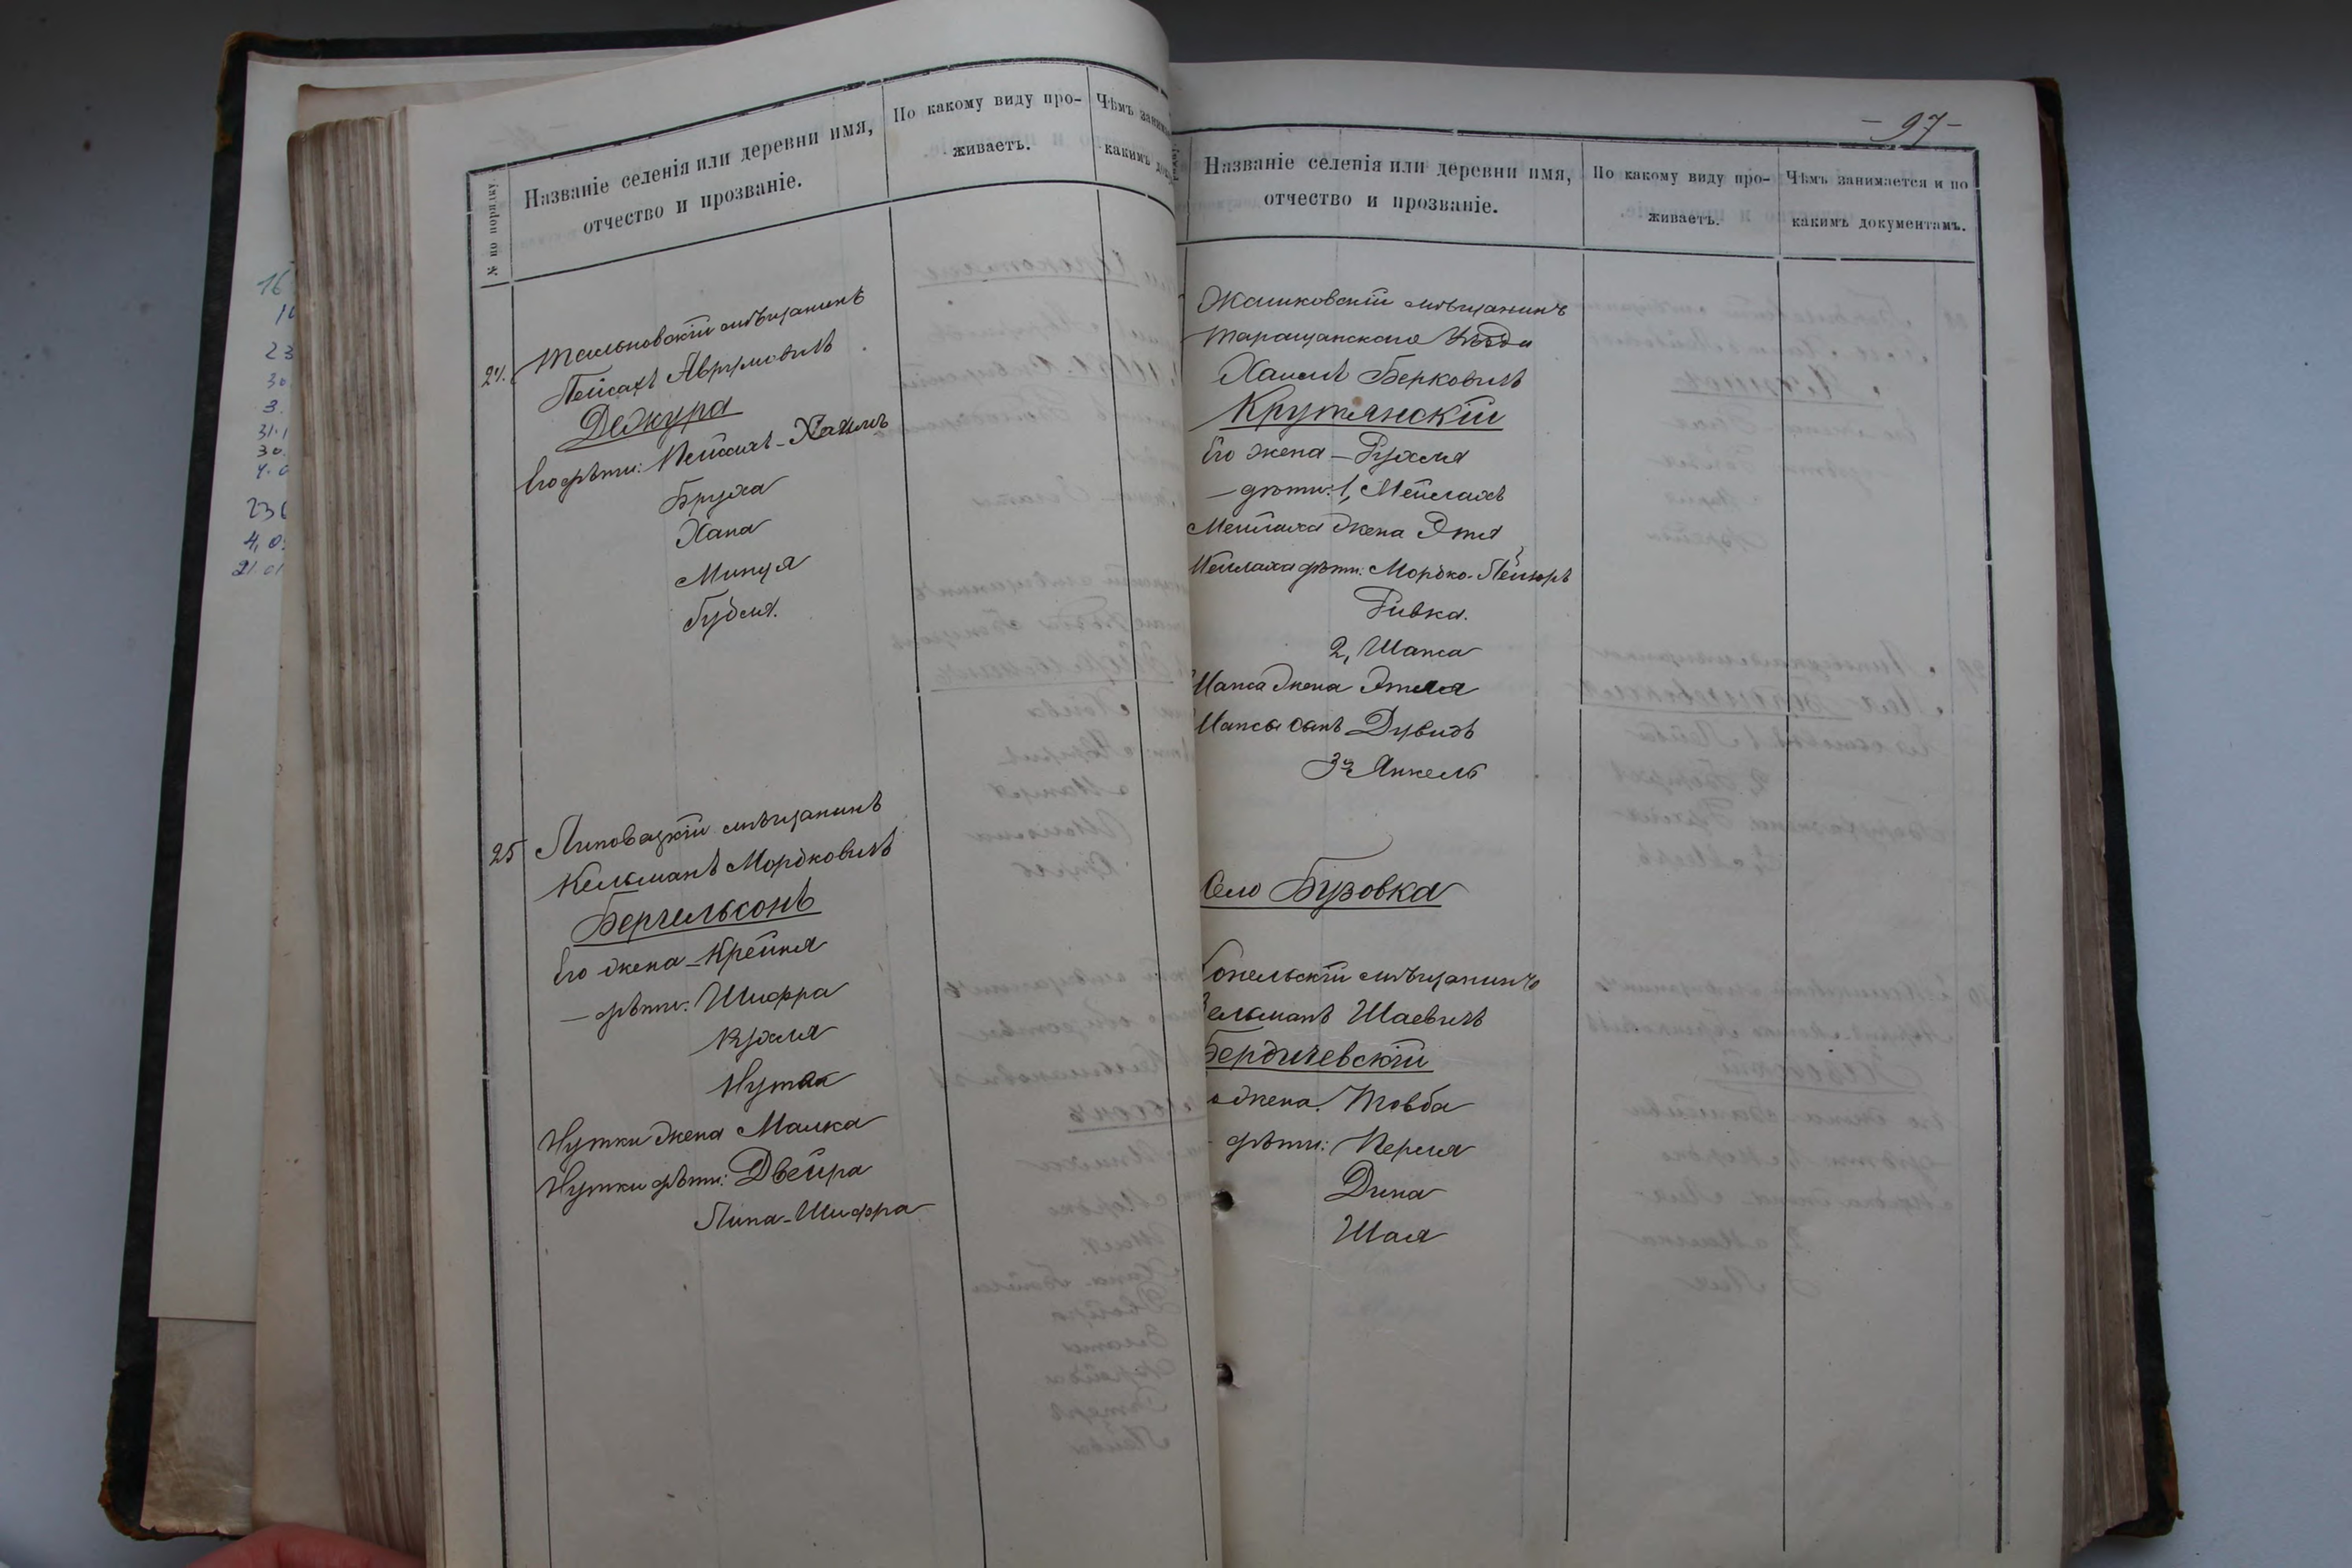 № по порядку.
Названіе селенія или деревни имя,
отчество и прозваніе.
По какому виду про-
живаетъ.
Чѣмъ
какимъ
24.
Тальновскій мѣщанинъ
Пейсахъ Аврумовичъ
Дежура
Его дѣти: Пейсахъ-Хаимъ
Бруха
Хана
Минця
Гудля.
25
Липовецкій мѣщанинъ
Кельманъ Мордковичъ
Бергельсонъ
Его жена - Крейня
- дѣти: Шифра
Рухля
Нутка
Нутки жена Малка
Нутки дѣти: Двейра
Липа-Шифра
16
23
30.
3.
31.1
30.
4.0
4,0
21.01
- 97 -
Названіе селенія или деревни имя,
отчество и прозваніе.
По какому виду про-
живаетъ.
Чѣмъ занимается и по
какимъ документамъ.
Жашковскій мѣщанинъ
Таращанскаго Уѣзда
Хаимъ Берковичъ
Крутянскій
Его жена - Рухля
- дѣти: 1, Мейлахъ
Мейлаха жена Этя
Мейлаха дѣти: Мордко-
Ривка.
2, Шапса
Шапса жена Этля
Шапсы сынъ Дувидъ
3, Янкель
Село Бузовка
Конельскій мѣщанинъ
Шаевичъ
Бердичевскій
жена. Товба
- дѣти: Перля
Дина
Шая